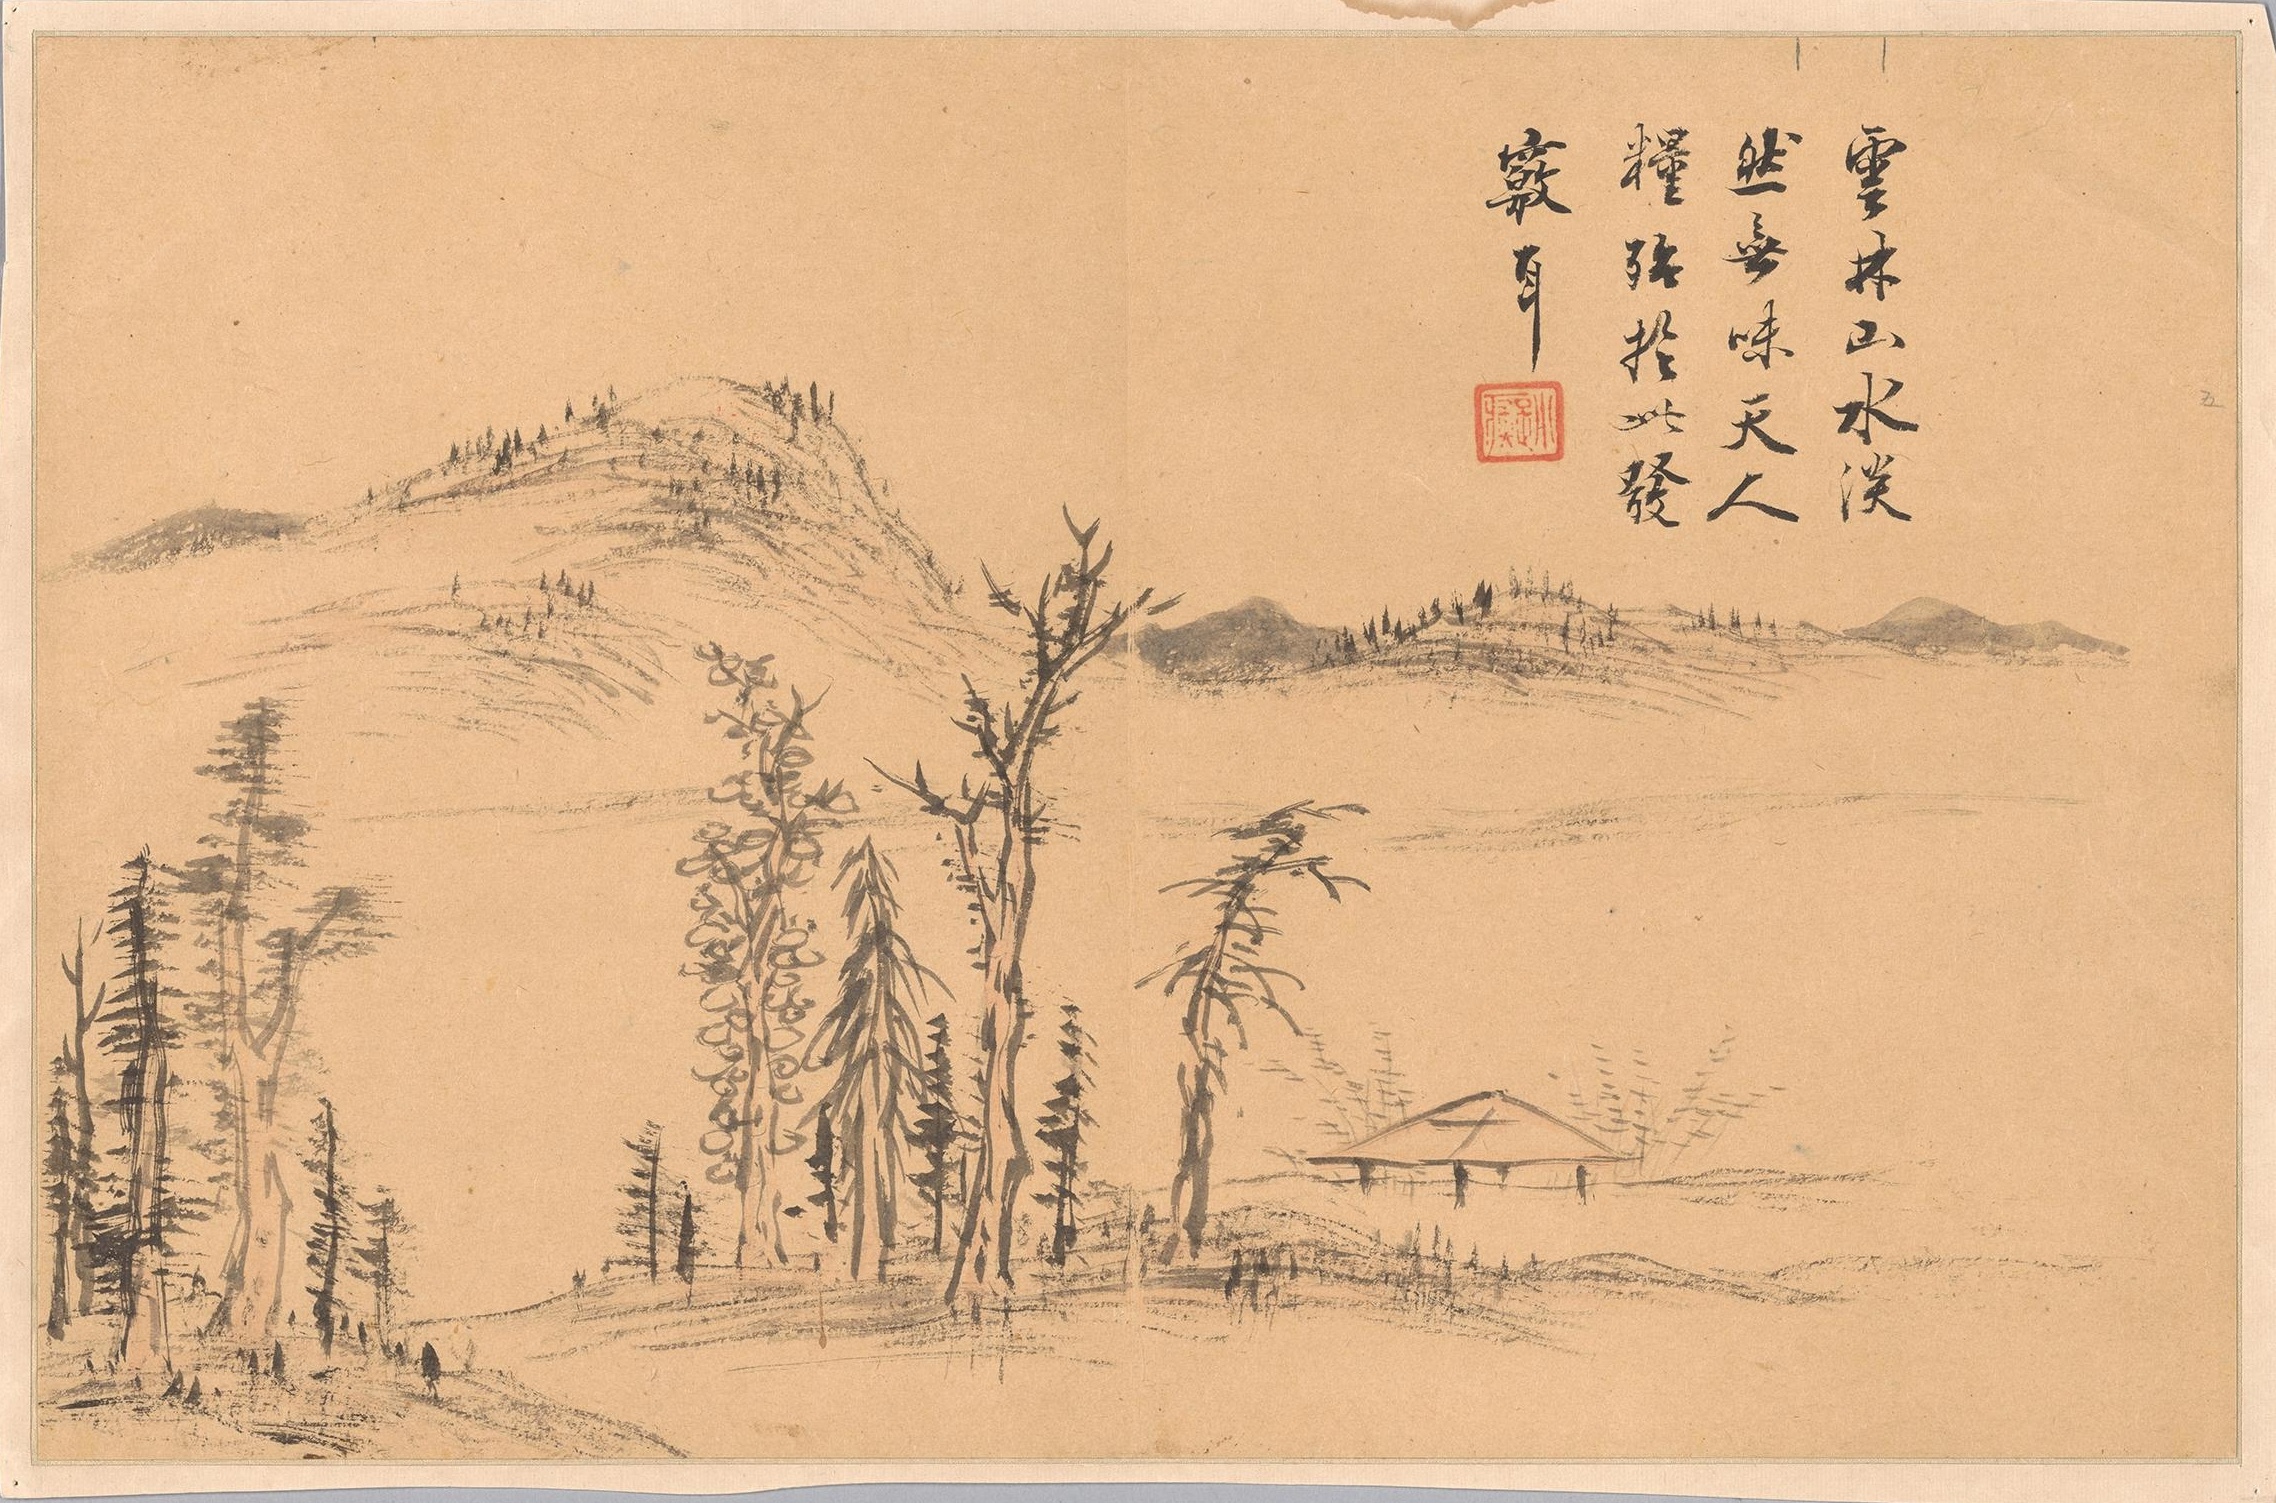 雲林山水淡
然無味天人
糧殆於此發
竅耳
五